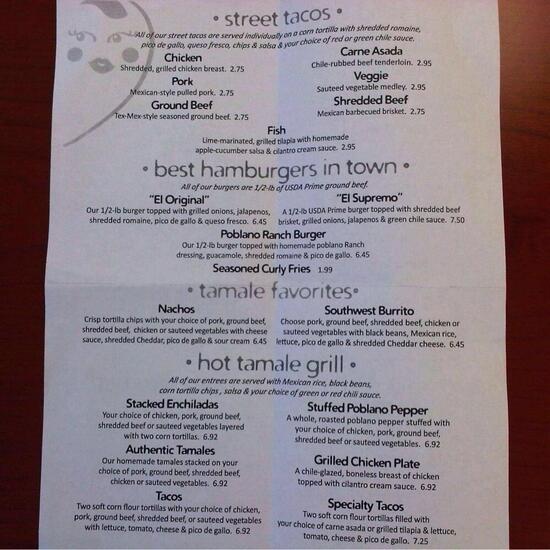 • street tacos •
All of our street tacos are served individually on a corn tortilla with shredded romaine,
pico de gallo, queso fresco, chips & salsa & your choice of red or green chile sauce.
Chicken
Shredded, grilled chicken breast. 2.75
Carne Asada
Chile-rubbed beef tenderloin. 2.95
Pork
Mexican-style pulled pork. 2.75
Veggie
Sauteed vegetable medley. 2.95
Ground Beef
Tex-Mex-style seasoned ground beef. 2.75
Shredded Beef
Mexican barbecued brisket. 2.75
Fish
Lime-marinated, grilled tilapia with homemade
apple-cucumber salsa & cilantro cream sauce. 2.95
• best hamburgers in town •
All of our burgers are 1/2-lb of USDA Prime ground beef.
"El Original"
Our 1/2-lb burger topped with grilled onions, jalapenos,
shredded romaine, pico de gallo & queso fresco. 6.45
"El Supremo"
A 1/2-lb USDA Prime burger topped with shredded beef
brisket, grilled onions, jalapenos & green chile sauce. 7.50
Poblano Ranch Burger
Our 1/2-lb burger topped with homemade poblano Ranch
dressing, guacamole, shredded romaine & pico de gallo. 6.45
Seasoned Curly Fries 1.99
• tamale favorites•
Nachos
Crisp tortilla chips with your choice of pork, ground beef,
shredded beef, chicken or sauteed vegetables with cheese
sauce, shredded Cheddar, pico de gallo & sour cream 6.45
Southwest Burrito
Choose pork, ground beef, shredded beef, chicken or
sauteed vegetables with black beans, Mexican rice,
lettuce, pico de gallo & shredded Cheddar cheese. 6.45
• hot tamale grill •
All of our entrees are served with Mexican rice, black beans,
corn tortilla chips, salsa & your choice of green or red chili sauce.
Stacked Enchiladas
Your choice of chicken, pork, ground beef,
shredded beef or sauteed vegetables layered
with two corn tortillas. 6.92
Stuffed Poblano Pepper
A whole, roasted poblano pepper stuffed with
your choice of chicken, pork, ground beef,
shredded beef or sauteed vegetables. 6.92
Authentic Tamales
Our homemade tamales stacked on your
choice of pork, ground beef, shredded beef,
chicken or sauteed vegetables. 6.92
Grilled Chicken Plate
A chile-glazed, boneless breast of chicken
topped with cilantro cream sauce. 6.92
Tacos
Two soft corn flour tortillas with your choice of chicken,
pork, ground beef, shredded beef, or sauteed vegetables
with lettuce, tomato, cheese & pico de gallo. 6.92
Specialty Tacos
Two soft corn flour tortillas filled with
your choice of carne asada or grilled tilapia & lettuce,
tomato, cheese & pico de gallo. 7.25